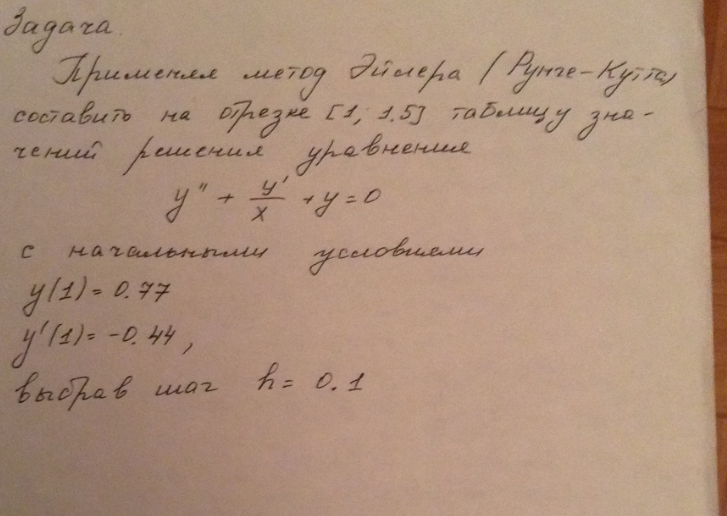 Задача.
Применяя метод Эйлера (Рунге-Кутта)
составить на отрезке [1, 1.5] таблицу зна-
чений решения уравнения
y'' + y'/x + y = 0
с начальными условиями
y(1) = 0.77
y'(1) = -0.44,
выбрав шаг h = 0.1